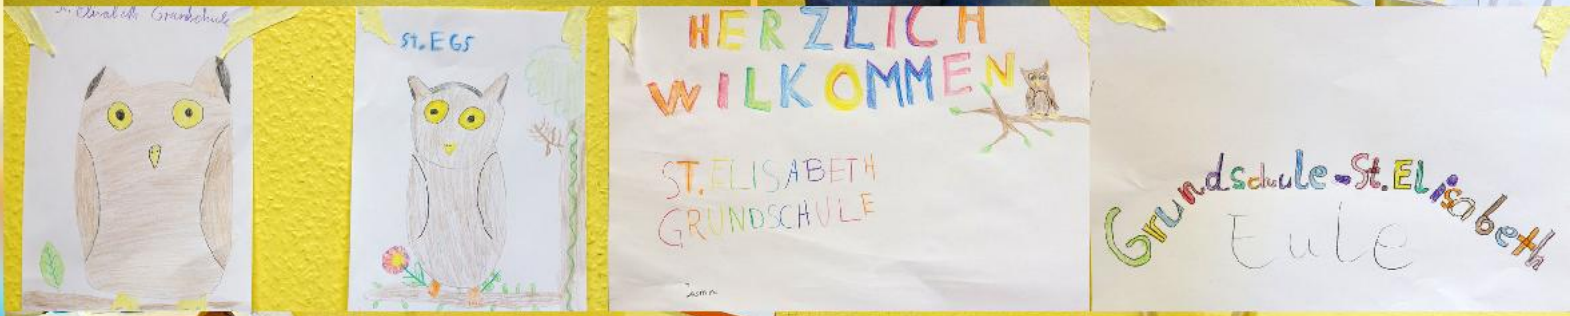 St. Elisabeth Grundschule
St. EGS
HERZLICH
WILKOMMEN
ST. ELISABETH
GRUNDSCHULE
Grundschule-St. ELisabeth
Eule